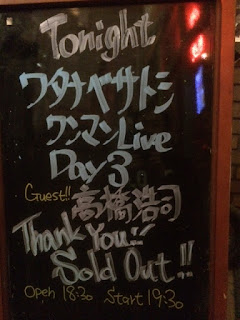 Tonight
ワタナベサトシ
ワンマンLive
Day 3
Guest!! 高橋浩司
Thank You!!
Sold Out!!
Open 18:30 Start 19:30